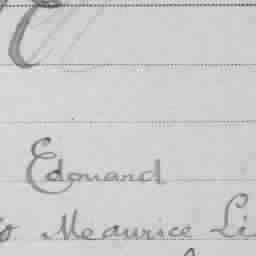 Edouard
Meaurice Li